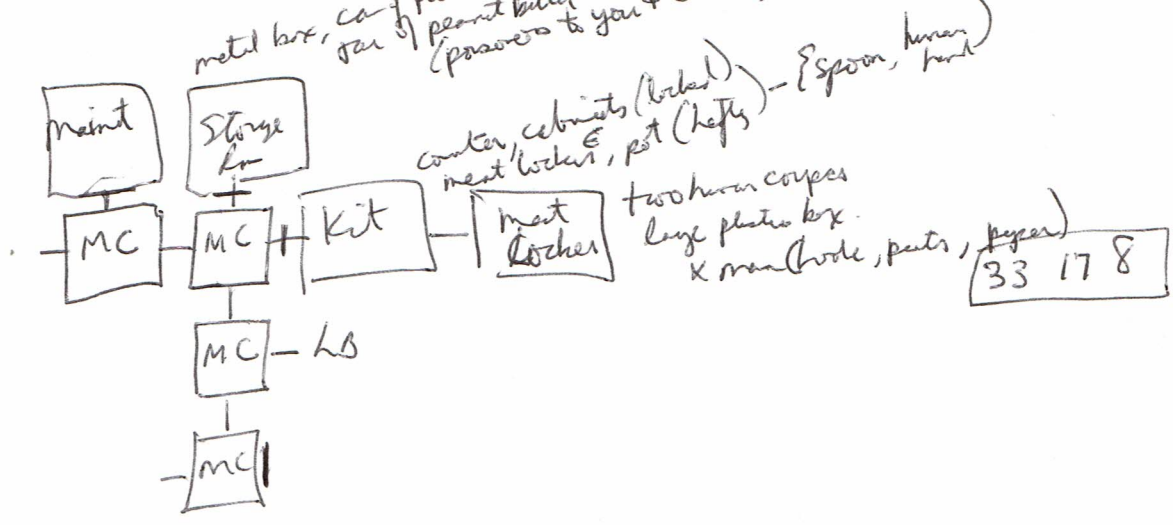 metal box, can of
jar of peanut butter
(poisonous to you
Maint
Storge
Rm
counter, cabinets (locked)
meat locker E, pot (hefty) - {spoon, human
hand
MC
MC
Kit
meat
Locker
two human corpses
large plastic box.
x man (hole, pants, paper)
33 17 8
MC - LB
MC